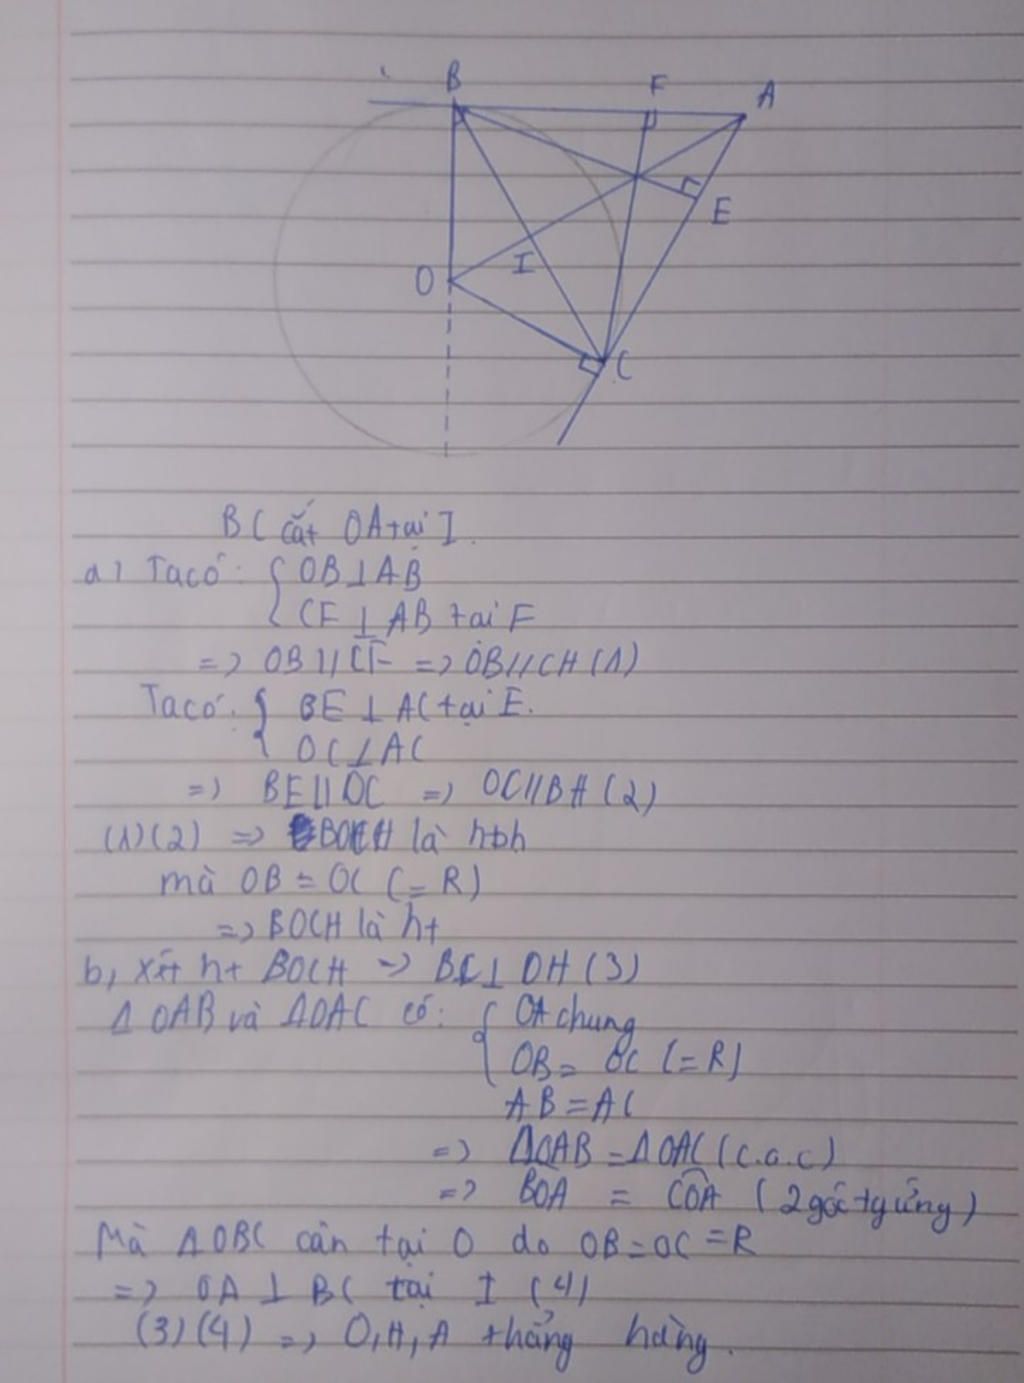 B
F
A
E
O
I
C
BC cắt OA tại I.
a) Ta có: { OB ⊥ AB
CF ⊥ AB tại F
=> OB // CF => OB // CH (1)
Ta có: { BE ⊥ AC tại E.
OC ⊥ AC
=> BE // OC => OC // BH (2)
(1)(2) => BOCH là hbh
mà OB = OC (= R)
=> BOCH là ht
b, Xét ht BOCH => BC ⊥ OH (3)
Δ OAB và ΔOAC có: { OA chung
OB = OC (= R)
AB = AC
=> ΔOAB = ΔOAC (c.c.c)
=> BOA = COA (2 góc tg ứng)
Mà ΔOBC cân tại O do OB = OC = R
=> OA ⊥ BC tại I (4)
(3)(4) => O, H, A thẳng hàng.